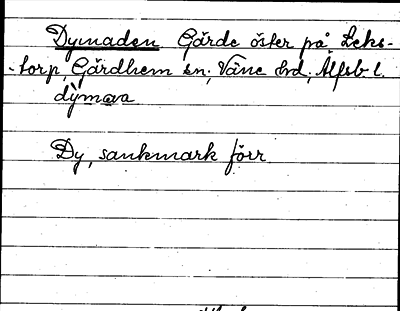 Dymaden Gärde öster på Leks-
-torp, Gärdhem sn, Väne hd, Älfsb. l.
dỳmava
Dy, sankmark förr